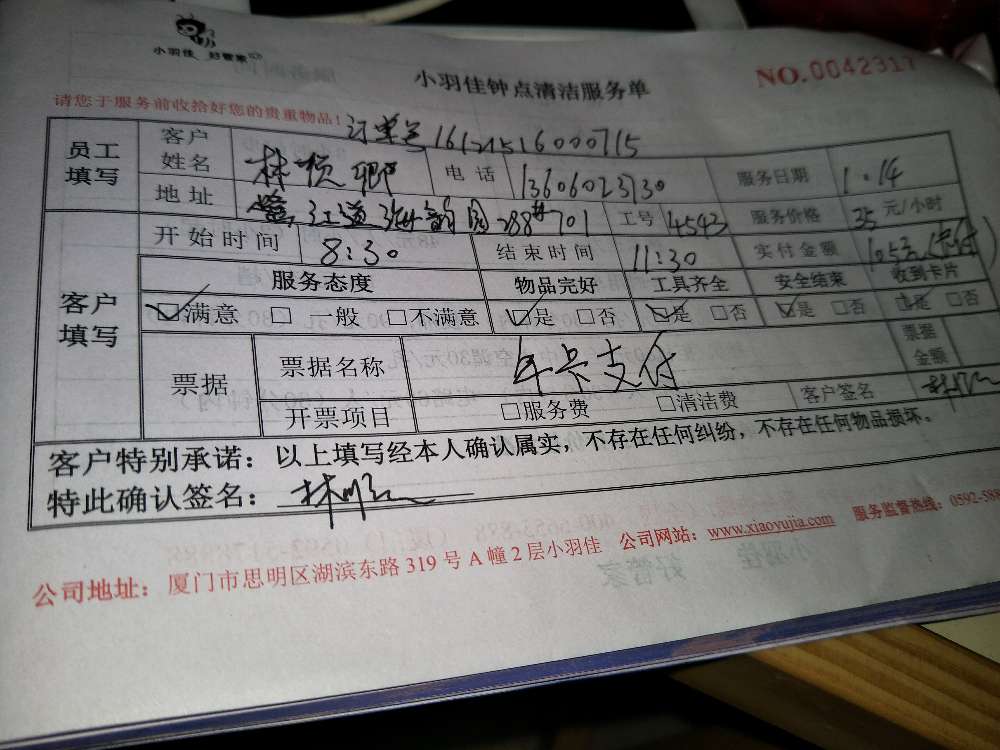 小羽佳 好管家
小羽佳钟点清洁服务单
NO.0042317
请您于服务前收拾好您的贵重物品!
订单号
员工填写 客户姓名 林 卿 电话 13606023730 服务日期 1.14
地址 道 园288# 701 工号 4543 服务价格 35 元/小时
客户填写 开始时间 8:30 结束时间 11:30 实付金额 105元(卡付)
服务态度 物品完好 工具齐全 安全结束 收到卡片
☑满意 □ 一般 □不满意 ☑是 □否 ☑是 □否 ☑是 □否 ☑是 □否
票据 票据名称 年卡支付 票据金额
开票项目 □服务费 □清洁费 客户签名
客户特别承诺:以上填写经本人确认属实,不存在任何纠纷,不存在任何物品损坏。
特此确认签名:
公司地址:厦门市思明区湖滨东路 319 号 A 幢 2 层小羽佳 公司网站:www.xiaoyujia.com 服务监督热线:0592-588